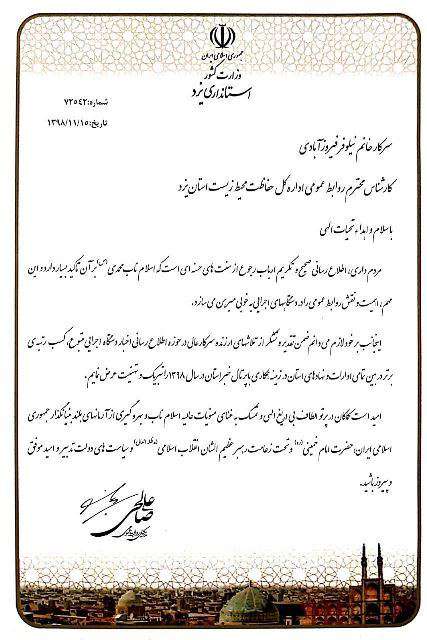 جمهوری اسلامی ایران
وزارت کشور
استانداری یزد
شماره: ۷۲۵۴۲
تاریخ: ۱۳۹۸/۱۱/۱۵
سرکار خانم نیلوفر فیروزآبادی
کارشناس محترم روابط عمومی اداره کل حفاظت محیط زیست استان یزد
باسلام و اهداء تحیات الهی
مردم داری، اطلاع رسانی صحیح و تکریم ارباب رجوع از سنت های حسنه ای است که اسلام ناب محمدی (ص) بر آن تأکید بسیار دارد و این
مهم، اهمیت و نقش روابط عمومی را در دستگاههای اجرایی به خوبی مبرهن می سازد.
اینجانب بر خود لازم می دانم ضمن تقدیر و تشکر از تلاشهای ارزنده سرکارعالی در حوزه اطلاع رسانی اخبار دستگاه اجرایی متبوع، کسب رتبه ی
برتر در بین تمامی ادارات و نهادهای استان در زمینه همکاری با پرتال خبر استان در سال ۱۳۹۸ را تبریک و تهنیت عرض نمایم.
امید است کماکان در پرتو الطاف بی دریغ الهی و تمسک به غنای منویات عالیه اسلام ناب و بهره گیری از آرمانهای بلند بنیانگذار جمهوری
اسلامی ایران، حضرت امام خمینی (ره) و تحت زعامت رهبر عظیم الشان انقلاب اسلامی و سیاست های دولت تدبیر و امید موفق
و پیروز باشید.